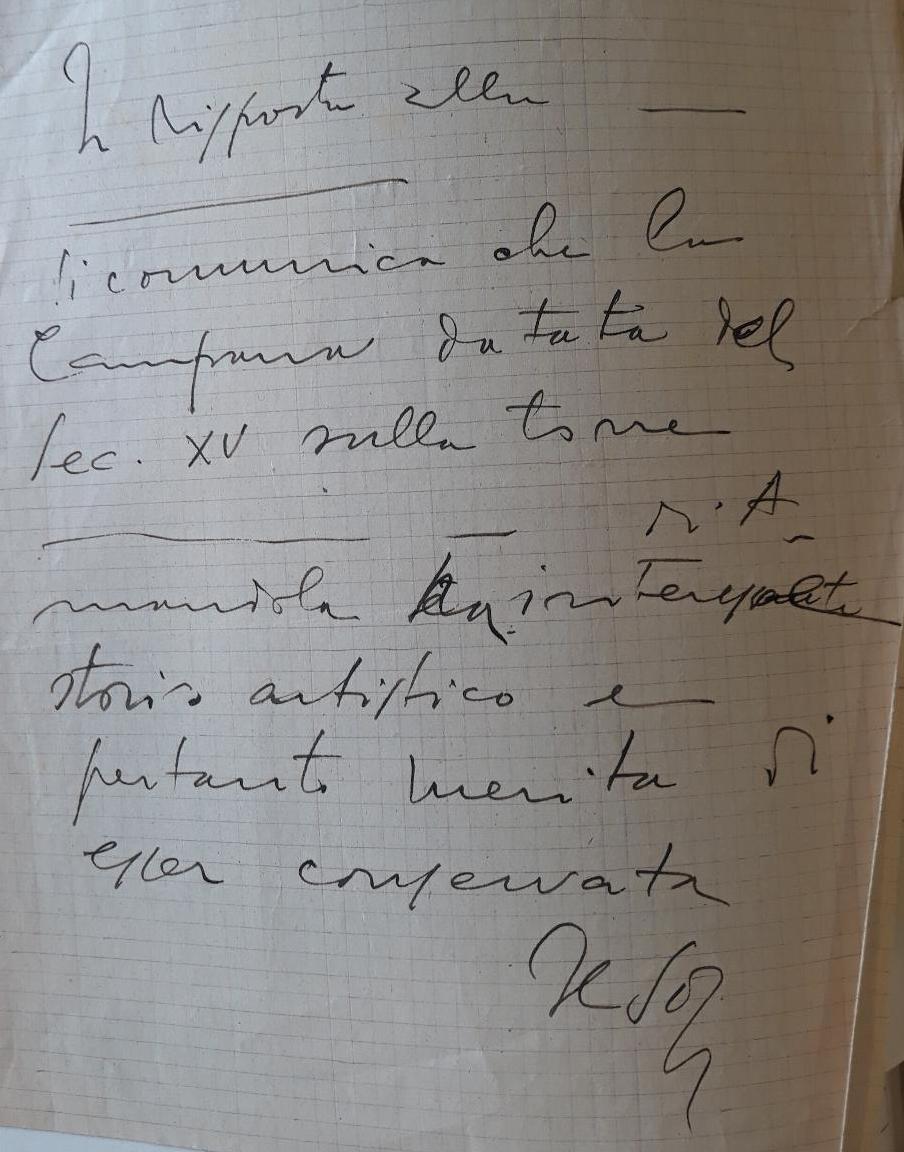 In risposta alla —
si comunica che la
Campana datata del
sec. XV sulla torre
mandola ha interesse
storico artistico e
pertanto merita di
esser conservata
Il So